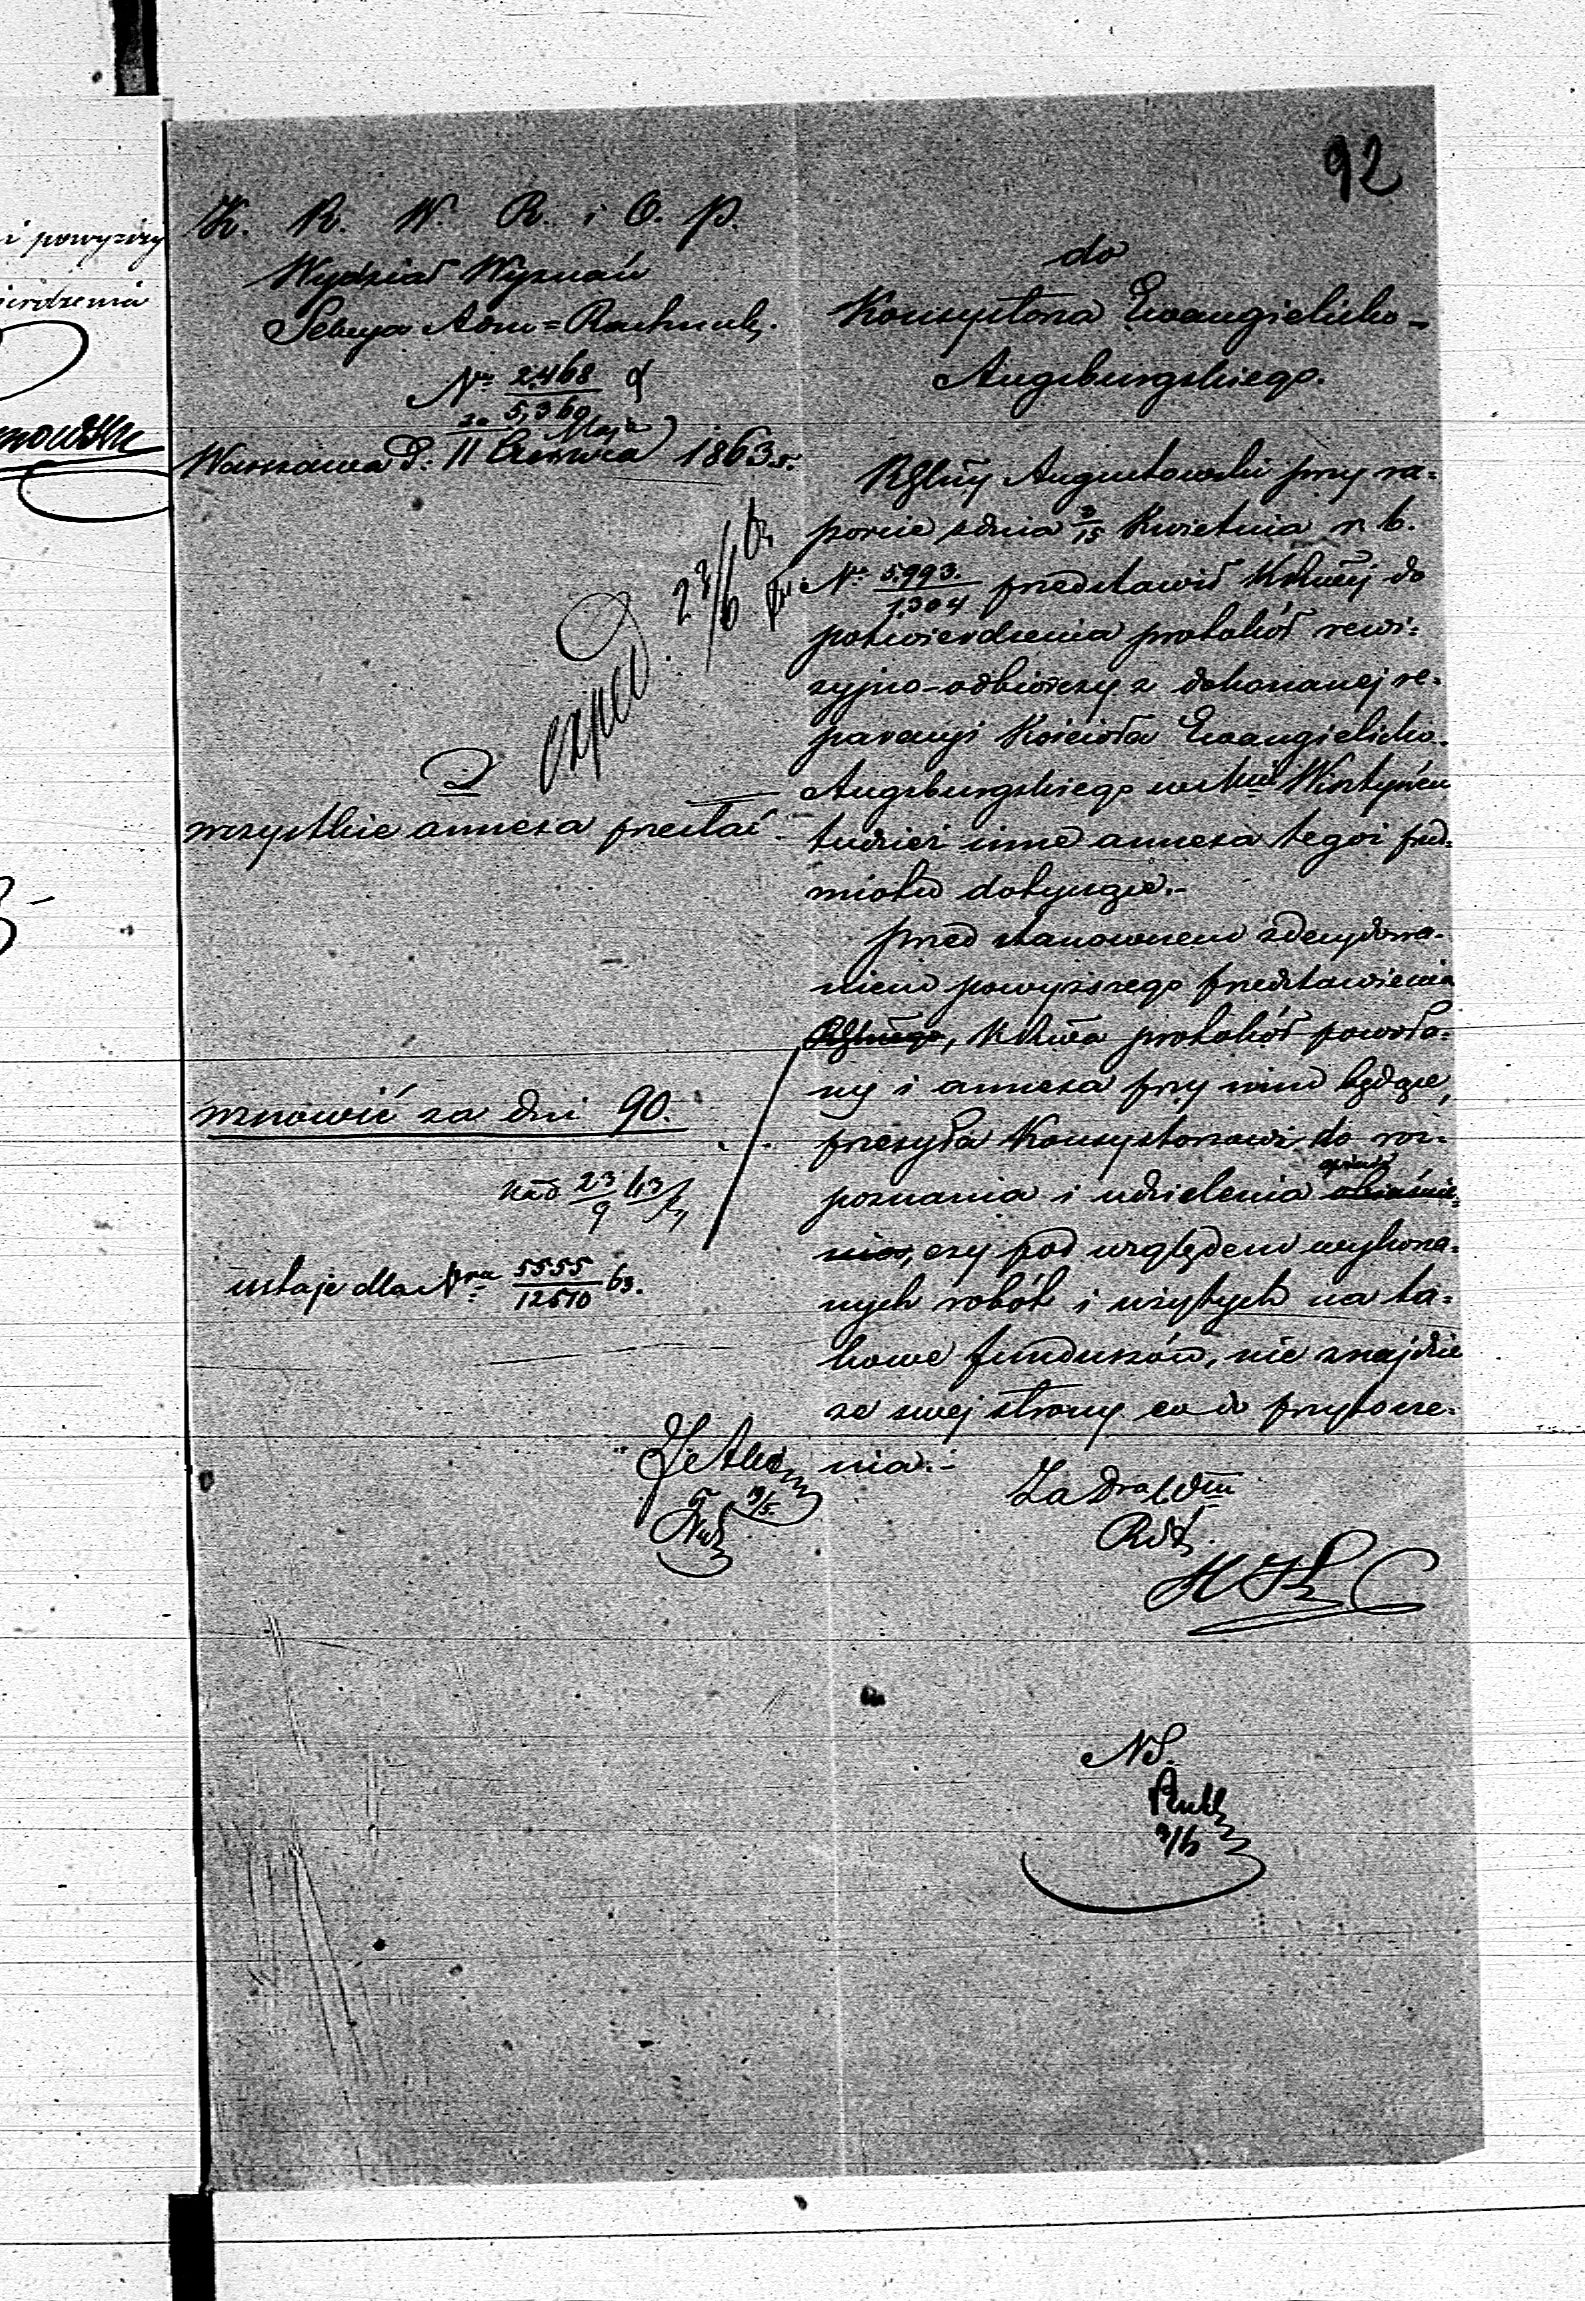 92
K. R. W. R. i O. P.
Wydział Wyznań
Sekcya Adm=Rachunk.
No 2468
5,360
Warszawa d: 11 Czerwca 1863 r.
20 Maja
do
Konsystorza Ewangielicko-
Augsburgskiego.
Rząd Gub. Augustowski przy ra-
porcie z dnia 3/15 Kwietnia r. b.
No 5993. przedstawił KRząej do
1,304
potwierdzenia protokół rewi-
zyjno-odbiorczy z dokonanej re-
paracyi Kościoła Ewangielicko-
Augsburgskiego w Wisztyńcu
tudzież inne annexa tegoż przed-
miotu dotyczące.-
przed stanowczem zdecydowa-
niem powyższego przedstawienia
protokół powoła-
ny i annexa przy nim będące,
przesyła Konsystorzowi do roz-
poznania i udzielenia opinii
czy pod względem wykona-
nych robót i użytych na ta-
kowe funduszów, nie znajdzie
ze swej strony co do przytocze-
nia.-
exped. 23/6 63
wszystkie annexa przesłać
wznowić za dni 90.
23/9 63
ustaje dla Nru 5555 63.
12610
Za Dra Włu
NS.
9/6
i powyższy